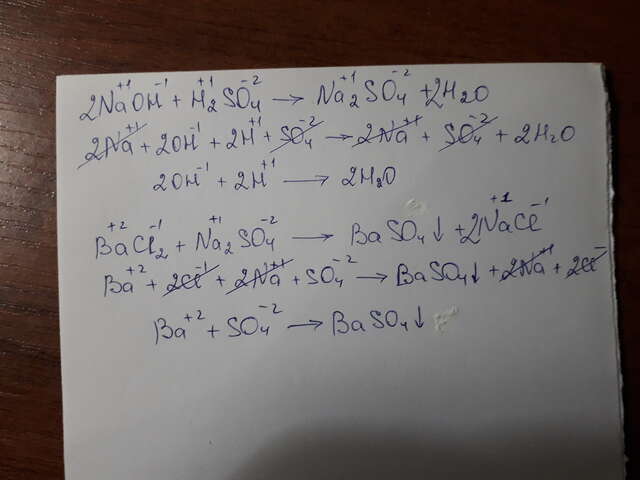 2Na⁺¹OH⁻¹ + H₂⁺¹SO₄⁻² → Na₂⁺¹SO₄⁻² + 2H₂O
2Na⁺¹ + 2OH⁻¹ + 2H⁺¹ + SO₄⁻² → 2Na⁺¹ + SO₄⁻² + 2H₂O
2OH⁻¹ + 2H⁺¹ → 2H₂O
Ba⁺²Cl₂⁻¹ + Na₂⁺¹SO₄⁻² → BaSO₄↓ + 2Na⁺¹Cl⁻¹
Ba⁺² + 2Cl⁻¹ + 2Na⁺¹ + SO₄⁻² → BaSO₄↓ + 2Na⁺¹ + 2Cl⁻
Ba⁺² + SO₄⁻² → BaSO₄↓